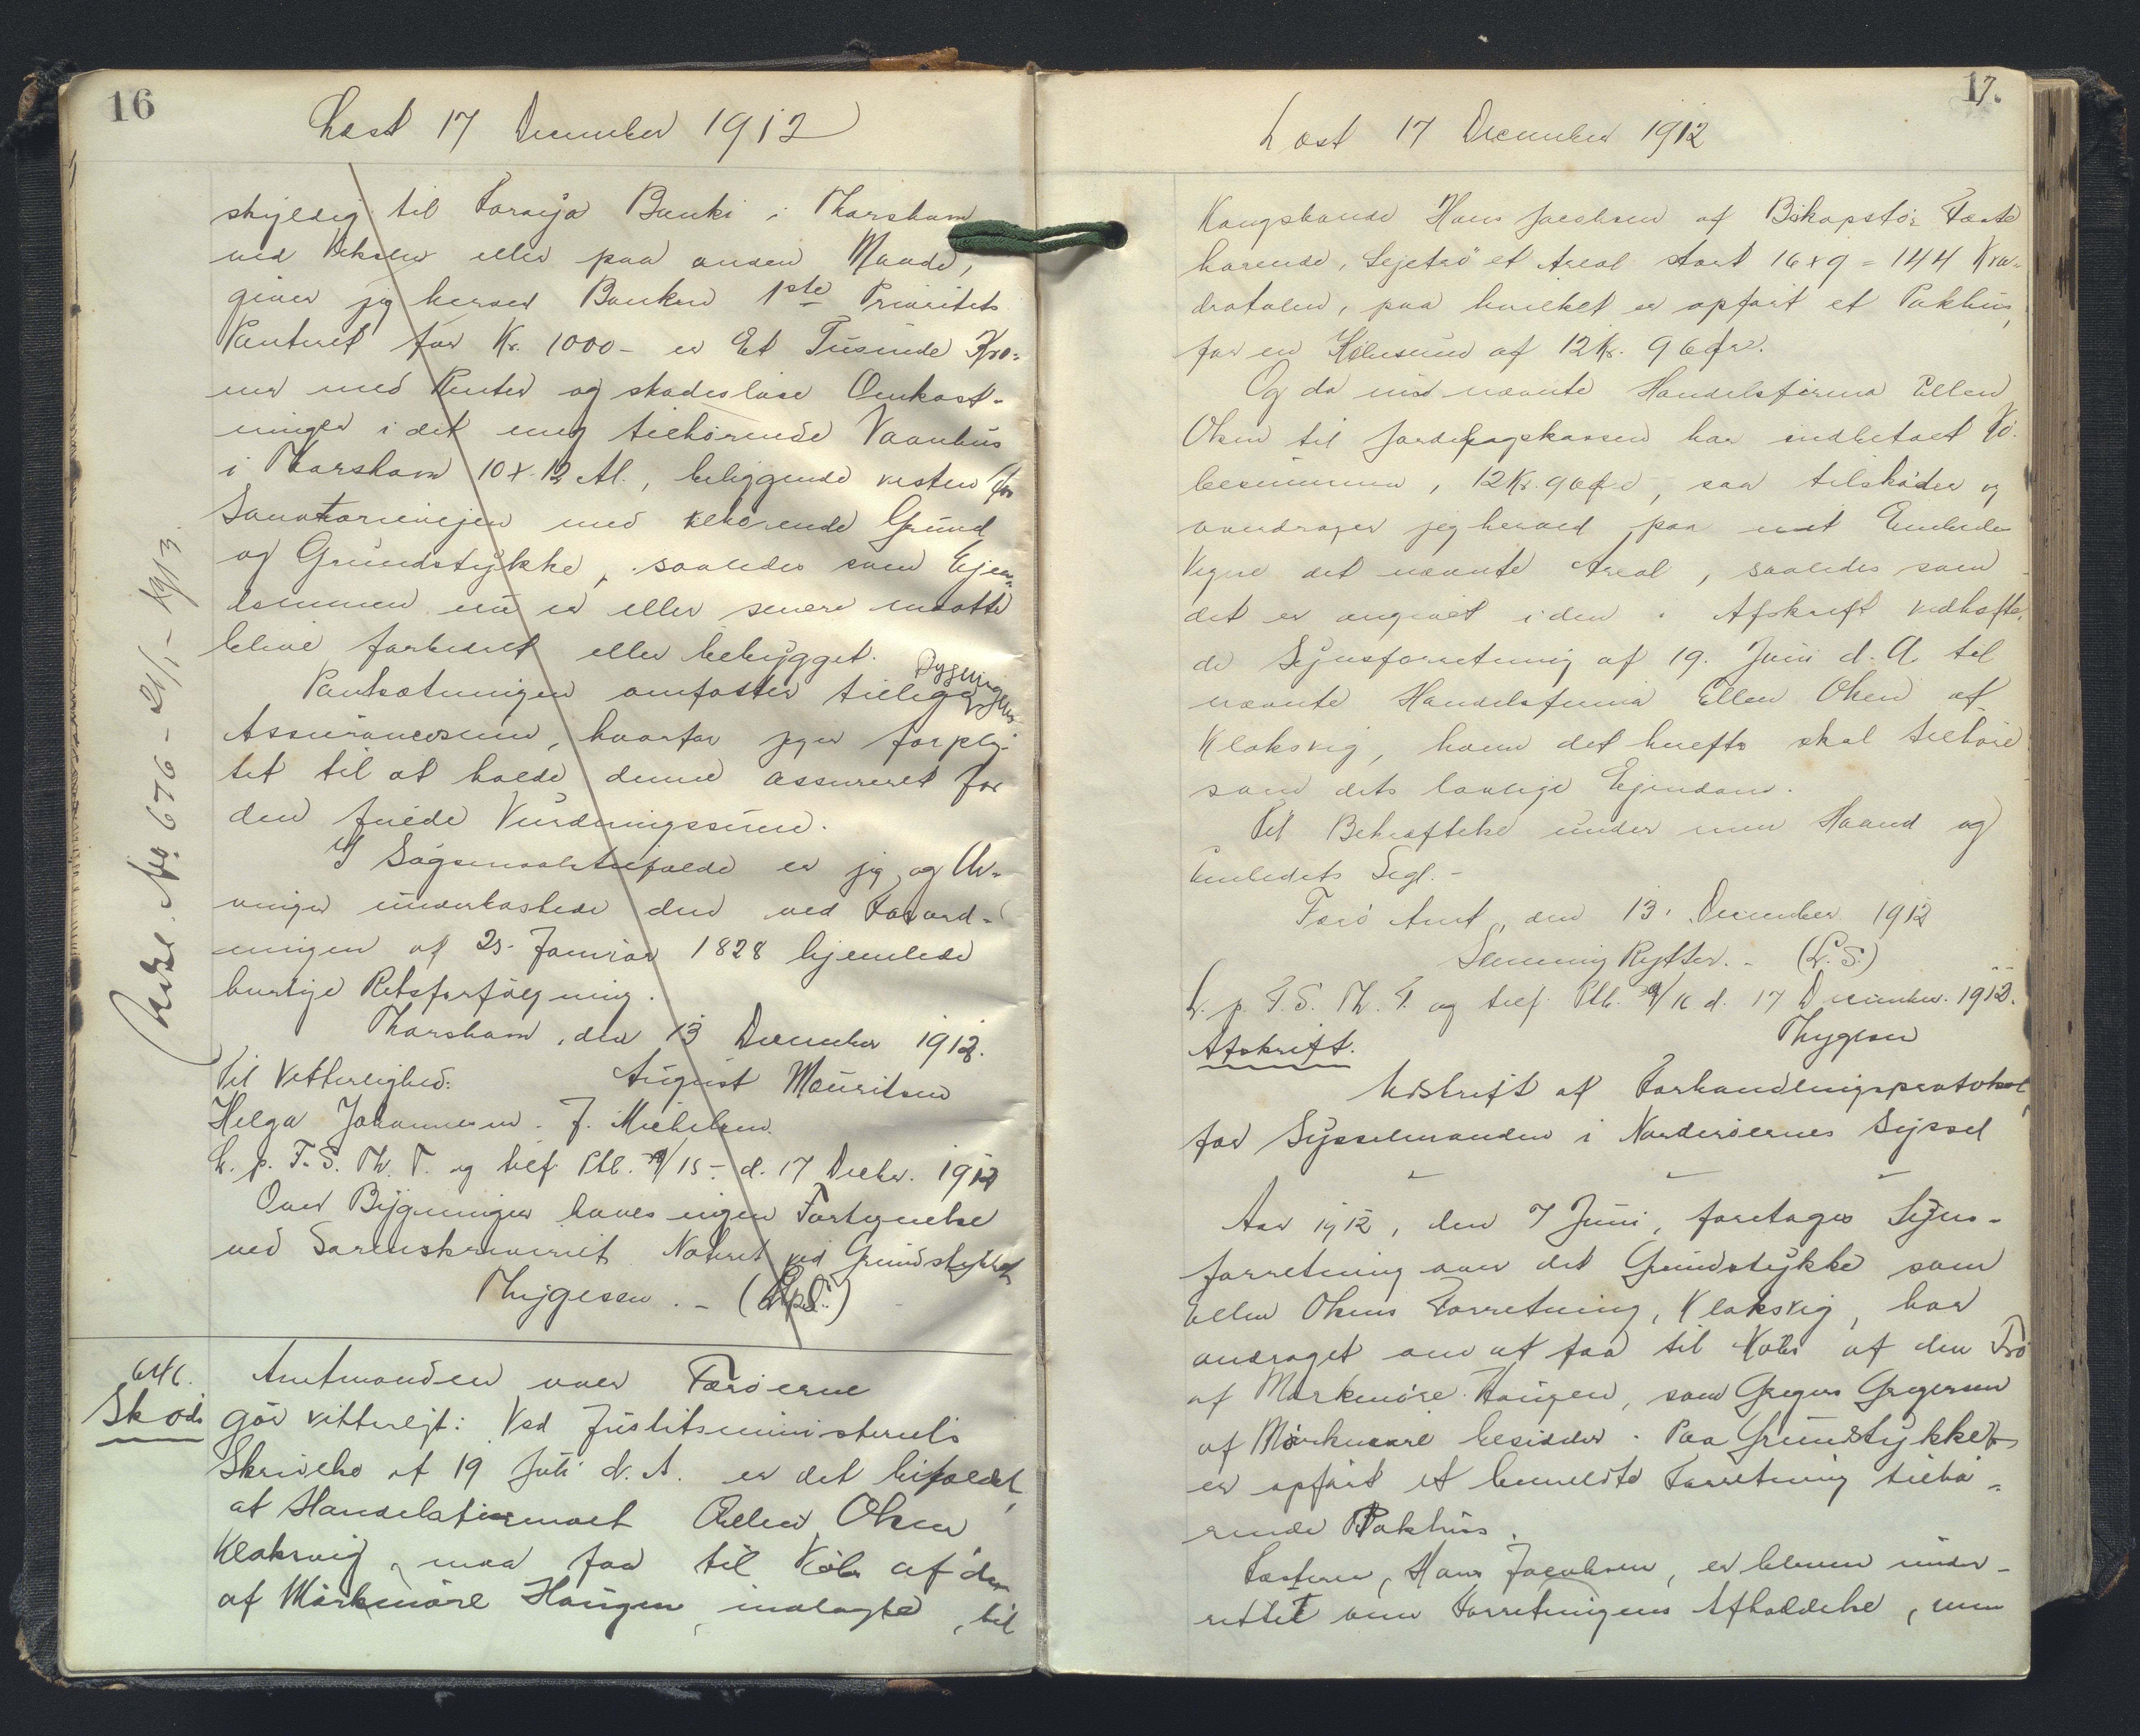 16
Læst 17 December 1912
skyldig til Føroya Banki i Thorshavn
ved Veksler eller paa anden Maade,
giver jeg herved Banken 1ste Prioritets
Panteret for Kr. 1000 - er Et Tusinde Kro-
ner med Renter og skadesløse Omkost-
ninger i det mig tilhørende Vaanhus
i Thorshavn 10 x 12 Al., beliggende vesten for
Sanatorievejen med tilhørende Grund
og Grundstykke, saaledes som Ejen-
dommen nu er eller senere maatte
blive forbedret eller bebygget.
Pantsætningen omfatter tillige Bygningens
Assurancesum, hvorfor jeg er forplig-
tet til at holde denne assureret for
den fulde Vurderingssum.
I Søgsmaalstilfælde er jeg og Ar-
vinger underkastede den ved Forord-
ningen af 25. Januar 1828 hjemlede
hurtige Retsforfølgning.
Thorshavn, den 13 December 1912.
Til Vitterlighed: August Mouritsen
Helga Johannesen. J. Michelsen.
L. p. F. S. Th. T. og tilf. Ptb. /15 - d. 17 Decbr. 1912
Over Bygninger haves ingen Fortegnelse
ved Sorenskriveriet. Noteret ved Grundstykket
Thygesen. - (L.S.)
Udsl. No 676 - 21/1 - 1913.
646.
Skøde
Amtmanden over Færøerne
gør vitterligt: Ved Justitsministeriets
Skrivelse af 19 Juli d. A. er det bifaldet,
at Handelsfirmaet Ellen Olsen
Klaksvig, maa faa til Købs af den
af Mørkmøre Haugen, indlagte, til
17.
Læst 17 December 1912
Kongsbonde Hans Jacobsen af Biskopstø's Fæste
hørende, Lejetrø et Areal stort 16 x 9 = 144 Kva-
dratalen, paa hvilket er opført et Pakhus,
for en Købesum af 12 Kr. 96 Øre.
Og da nu nævnte Handelsfirma Ellen
Olsen til Jordebogskassen har indbetalt Kø-
besummen, 12 Kr. 96 Øre, saa tilskøder og
overdrager jeg herved paa mit Embeds
Vegne det nævnte Areal, saaledes som
det er angivet i den i Afskrift vedhæfte-
de Synsforretning af 19. Juni d. A. til
nævnte Handelsfirma Ellen Olsen af
Klaksvig, hvem det herefter skal tilhøre
som dets lovlige Ejendom.
Til Bekræftelse under min Haand og
Embedets Segl. -
Færø Amt, den 13. December 1912
Svenning Rytter. - (L.S.)
L. p. F. S. Th. T. og tilf. Ptb. /16 d. 17 December. 1912.
Thygesen
Afskrift.
Udskrift af Forhandlingsprotokol
for Sysselmanden i Norderøernes Syssel
Aar 1912, den 7 Juni, foretages Syns-
forretning over det Grundstykke som
Ellen Olsens Forretning, Klaksvig, har
andraget om at faa til Købs af den Trø
af Mørkmøre Haugen, som Gregers Gregersen
af Mørkmøre besidder. Paa Grundstykket
er opført et bemeldte Forretning tilhø-
rende Pakhus.
Fæsteren, Hans Jacobsen, er bleven under-
rettet om Forretningens Afholdelse, men